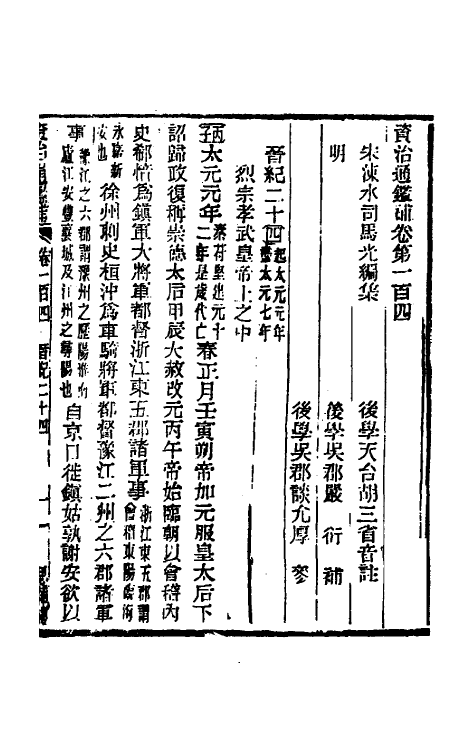 資治通鑑補卷第一百四
宋涑水司馬光編集 後學天台胡三省音註
明 後學吳郡嚴衍補
後學吳郡談允厚參
晉紀二十四起太元元年盡太元七年
烈宗孝武皇帝上之中
丙子太元元年秦苻堅建元十二年是歲代亡春正月壬寅朔帝加元服皇太后下
詔歸政復稱崇德太后甲辰大赦改元丙午帝始臨朝以會稽內
史郗愔爲鎭軍大將軍都督浙江東五郡諸軍事浙江東五郡謂會稽東陽臨海
永嘉新安也徐州刺史桓沖爲車騎將軍都督豫江二州之六郡諸軍
事豫江之六郡謂豫州之歷陽淮南廬江安豐襄城及江州之尋陽也自京口徙鎭姑孰謝安欲以
卷一百四 晉紀二十四 一